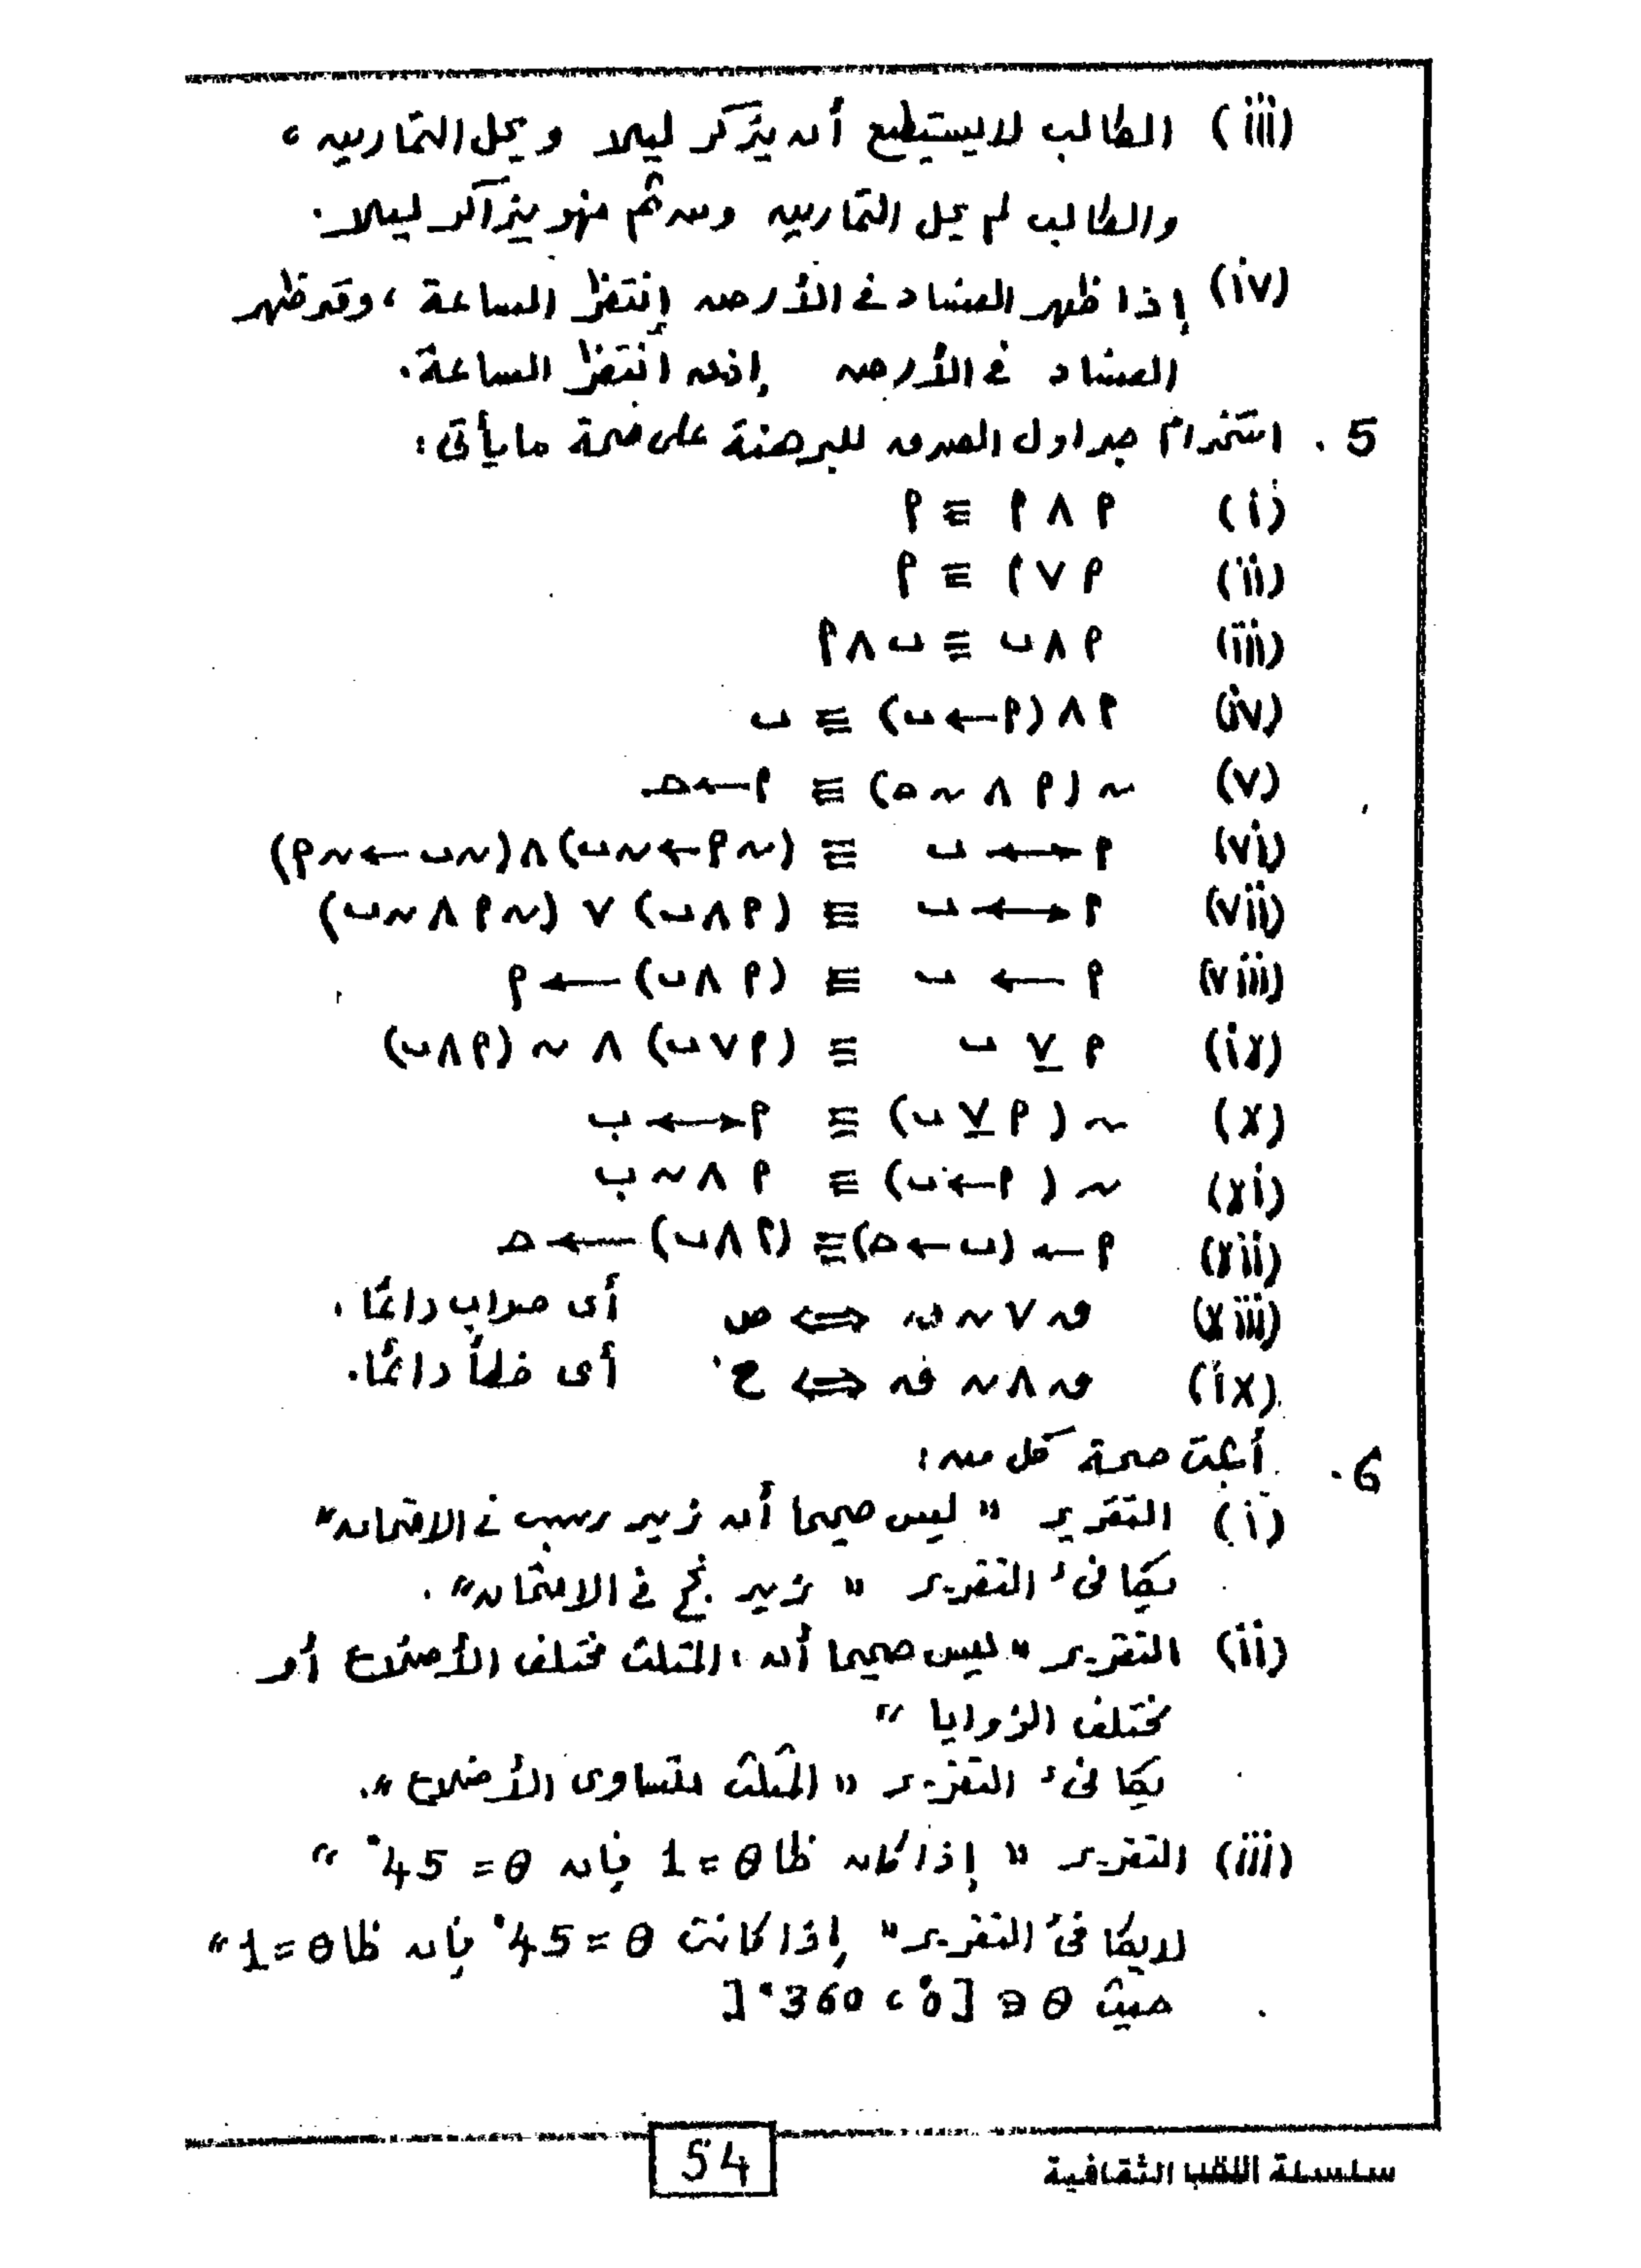 (iii) الطالب لا يستطيع أن يذاكر ليلا ويحل التمارين ،
والطالب لم يحل التمارين ومن ثم فهو يذاكر ليلا .
(iv) إذا ظهر الفساد في الأرض إنتظر الساعة ، وقد ظهر
الفساد في الأرض إذن انتظر الساعة .
5 . استخدام جداول الصدق للبرهنة على صحة ما يأتى :
(i) م ∧ م ≡ م
(ii) م ∨ م ≡ م
(iii) م ∧ ب ≡ ب ∧ م
(iv) م ∧ (م ← ب) ≡ ب
(v) ~ (م ∧ ~ ح) ≡ م ← ح .
(vi) م ↔ ب ≡ (~ م ← ~ ب) ∧ (~ ب ← ~ م)
(vii) م ↔ ب ≡ (م ∧ ب) ∨ (~ م ∧ ~ ب)
(viii) م ← ب ≡ (م ∧ ب) ← م
(ix) م ⊻ ب ≡ (م ∨ ب) ∧ ~ (م ∧ ب)
(x) ~ (م ⊻ ب) ≡ م ↔ ب
(xi) ~ (م ← ب) ≡ م ∧ ~ ب
(xii) م ← (ب ← ح) ≡ (م ∧ ب) ← ح
(xiii) ق ∨ ~ ق ⇔ ص أى صواب دائمًا .
(ix) ق ∧ ~ ق ⇔ خ . أى خطأ دائمًا .
6 . أثبت صحة كل من :
(i) التقرير " ليس صحيحا أن زيد رسب في الامتحان "
يكافئ التقرير " زيد نجح في الامتحان " .
(ii) التقرير " ليس صحيحا أن المثلث مختلف الأضلاع أو
مختلف الزوايا "
يكافئ التقرير " المثلث متساوى الأضلاع " .
(iii) التقرير " إذا كان ظا θ = 1 فإن θ = 45° "
لا يكافئ التقرير " إذا كانت θ = 45° فإن ظا θ = 1 "
حيث θ ∈ [0° ، 360°[
54
سلسلة اللقب الثقافية